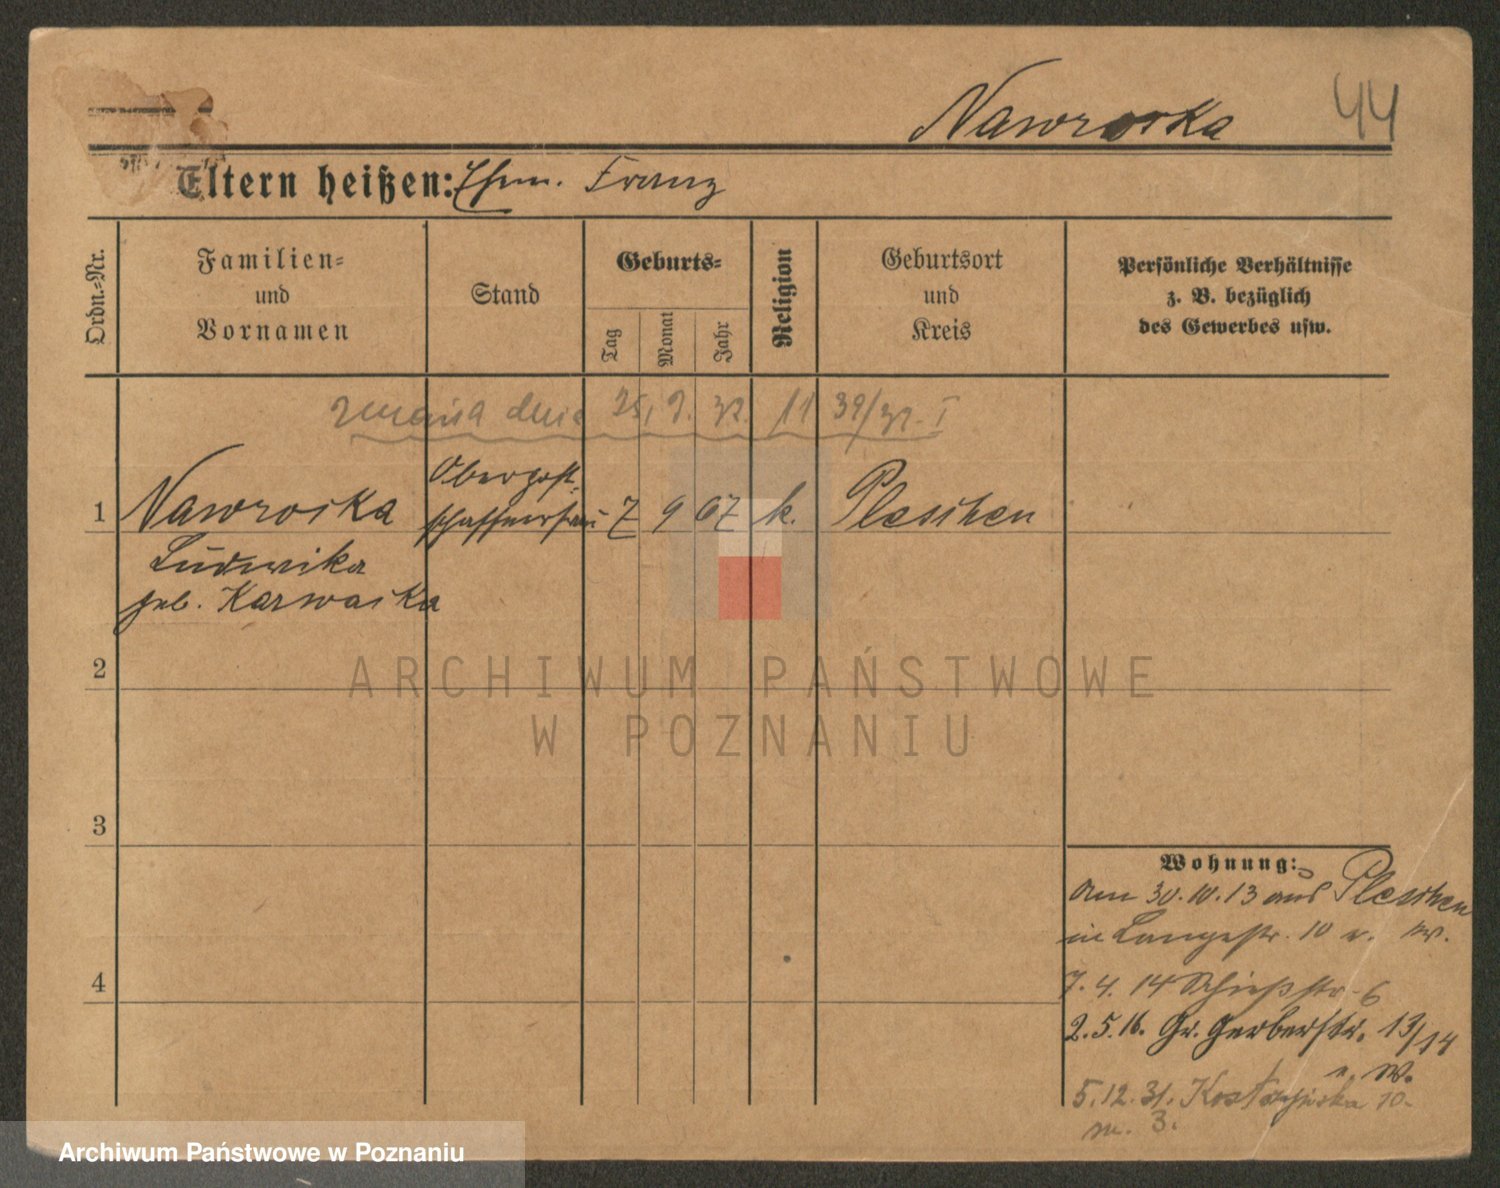 Nawroska 44
Eltern heißen: Ehem. Franz
Ordn.-Nr.
Familien-
und
Vornamen
Stand
Geburts-
Tag
Monat
Jahr
Religion
Geburtsort
und
Kreis
Persönliche Verhältnisse
z. B. bezüglich
des Gewerbes usw.
zmarła dnia 25. 2. 32. 11 39/32. I
1 Nawroska Oberpost-
schaffnerfrau 7 9 67 k. Pleschen
Ludwika
geb. Karwaska
2
3
4
Wohnung:
Am 30.10.13 aus Pleschen
in Langestr. 10
7.4.14 Schießstr. 6
2.5.16. Gr. Gerberstr. 13/14
5.12.31. Kostrzyńska 10
m. 3.
ARCHIWUM PAŃSTWOWE
W POZNANIU
Archiwum Państwowe w Poznaniu